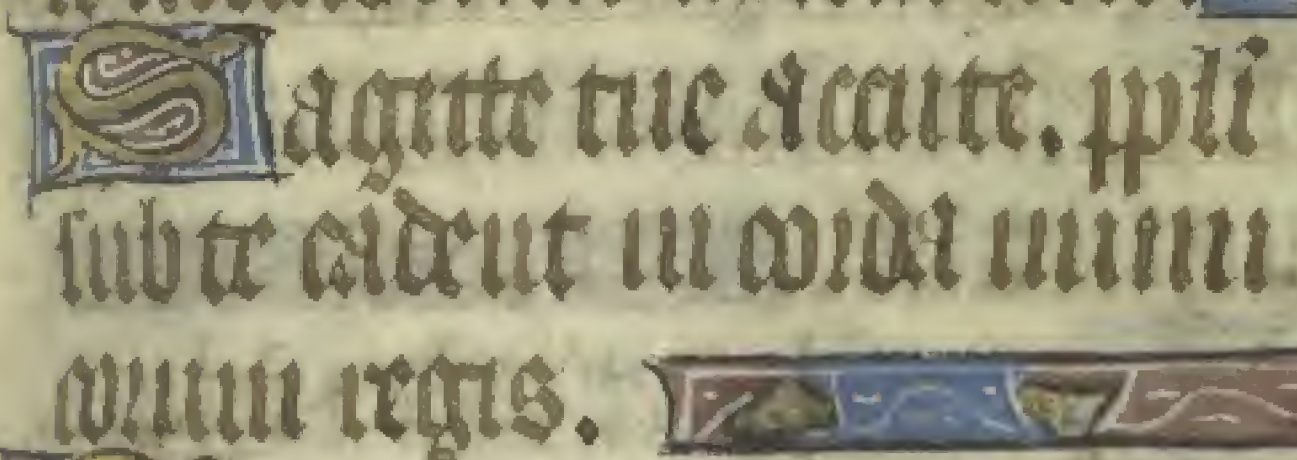 Sagitte tue accute. ppli
sub te cadent in corda inimi
corum regis.